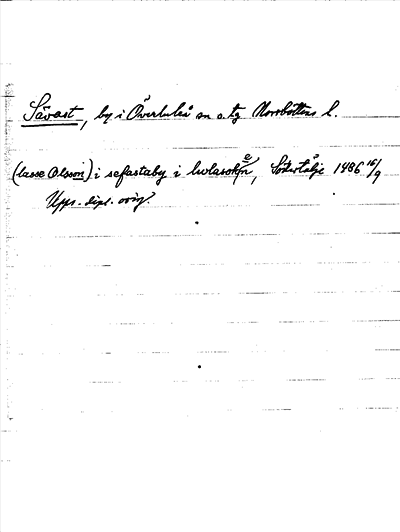 Sävast, by i Överluleå sn o. tg Norrbottens l.
(lasse Olsson) i sefastaby i lwlasokn, Södertälje 1486 16/9
Upps. dipl. orig.